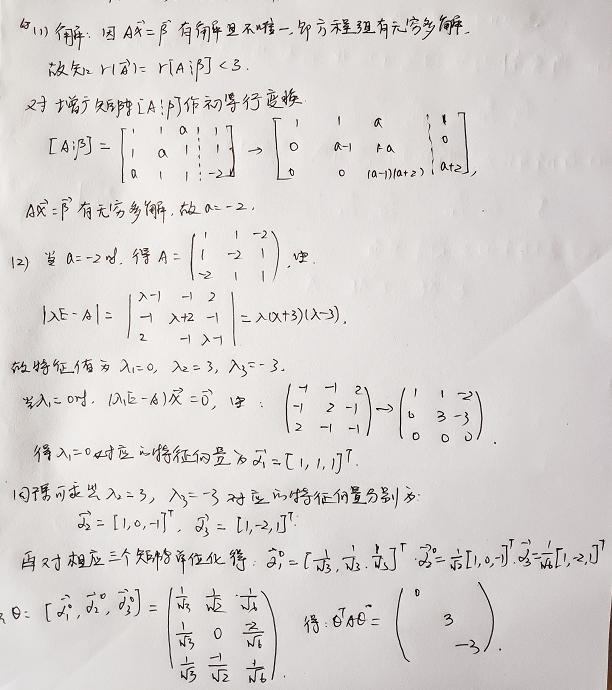 (1) 解: 因 Ax⃗=β⃗ 有解且不唯一, 即方程组有无穷多解.
故知: r(A⃗)= r[A⋮β] <3.
对增广矩阵[A⋮β]作初等行变换
[A⋮β] = [1 1 a ⋮ 1; 1 a 1 ⋮ 1; a 1 1 ⋮ -2] → [1 1 a ⋮ 1; 0 a-1 1-a ⋮ 0; 0 0 (a-1)(a+2) ⋮ a+2],
Ax⃗=β⃗ 有无穷多解, 故a=-2.
(2) 当 a=-2时, 得 A= (1 1 -2; 1 -2 1; -2 1 1), 由.
|λE-A|= |λ-1 -1 2; -1 λ+2 -1; 2 -1 λ-1| = λ(λ+3)(λ-3),
故特征值为 λ₁=0, λ₂=3, λ₃=-3.
当λ₁=0时. (λ₁E-A)x⃗=0⃗, 由: (-1 -1 2; -1 2 -1; 2 -1 -1) → (1 1 -2; 0 3 -3; 0 0 0).
得λ₁=0对应的特征向量为 α⃗₁=[1,1,1]ᵀ.
同理可求出 λ₂=3, λ₃=-3 对应的特征向量分别为:
α⃗₂=[1,0,-1]ᵀ, α⃗₃=[1,-2,1]ᵀ.
再对相应三个矩阵单位化得: α⃗₁⁰=[1/√3, 1/√3, 1/√3]ᵀ α⃗₂⁰=1/√2[1,0,-1]ᵀ. α⃗₃⁰=1/√6[1,-2,1]ᵀ
θ=[α⃗₁⁰, α⃗₂⁰, α⃗₃⁰]= (1/√3 1/√2 1/√6; 1/√3 0 2/√6; 1/√3 -1/√2 1/√6). 得: θᵀAθ= (0 3 -3).